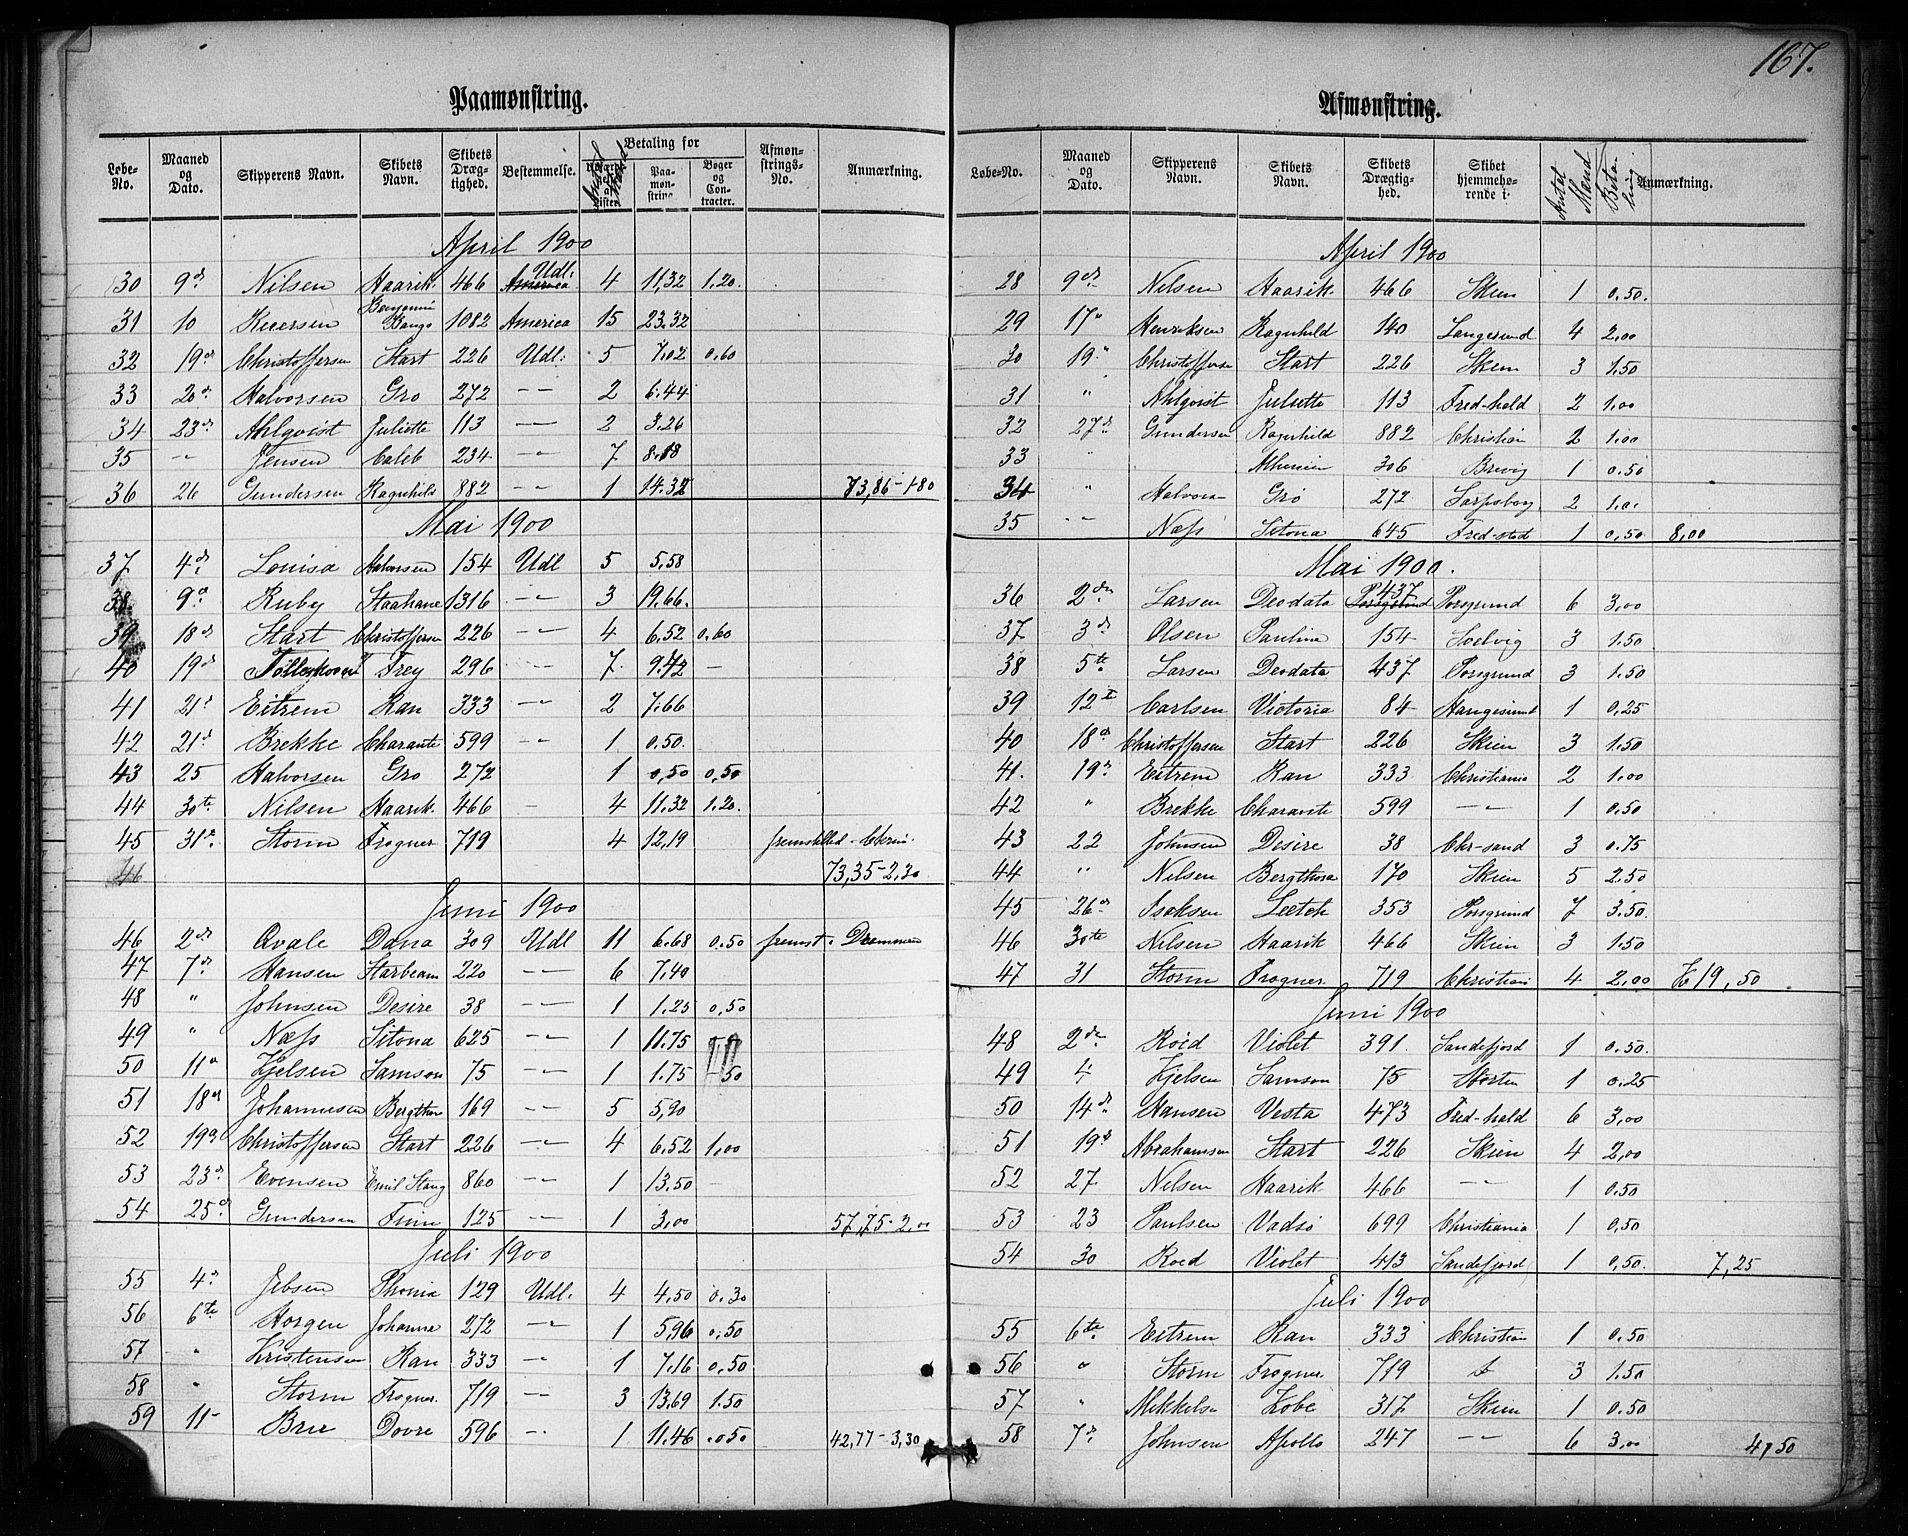 167.
Paamønstring.
Løbe-No. Maaned og Dato. Skipperens Navn. Skibets Navn. Skibets Drægtighed. Bestemmelse. Antal Mand Betaling for Paamønstring Bøger og Contracter. Afmønstrings-No. Anmærkning.
April 1900
30 9de Nilsen Haarik. 466 Udl. America 4 11,32 1.20.
31 10 Benjamin Bangs 1082 America 15 23.32
32 19de Christoffersen Start 226 Udl: 5 7.02 0.60
33 20de Halvorsen Gro 272 -"- 2 6.44
34 23de Ahlqvist Juliette 113 -"- 2 3.26
35 " Jensen Caleb 234 -"- 7 8.18
36 26 Gundersen Ragnhild 882 -"- 1 14.32 73,86-1.80
Mai 1900
37 4de Louisa Halvorsen 154 Udl 5 5,58
38 9de Ruby Staahane 1316 -"- 3 19.66.
39 18de Start Christoffersen 226 -"- 4 6.52 0.60
40 19de Frey 296 -"- 7. 9.42 -
41 21de Eitrem Ran 333 -"- 2 7.66
42 21de Brekke Charante 599 -"- 1 0.50.
43 25 Halvorsen Gro 272 1 0,50 0,50
44 30te Nilsen Haarik. 466 - 4 11.32 1.20.
45 31te Storm Frogner 719 4 12,19 fremstillet
46 73,35-2,30
Juni 1900
46 2den Qvale Dana 309 Udl 11 6.68 0.50 fremst. Drammen
47 7de Hansen Starbeam 220 -"- 6 7.40
48 " Johnsen Desire 38 -"- 1 1.25 0,50
49 " Næss Sitona 625 -"- 1 11.75
50 11te Kjelsen Samson 75 -"- 1 1.75 50
51 18de Johannesen Bergthora 169 -"- 5 5,90
52 19de Christoffersen Start 226 -"- 4 6.52 1,00
53 23de Evensen Emil Stang 860 -"- 1 13.50 -
54 25de Gundersen 125 -"- 1 3,00 57,75-2,00
Juli 1900
55 4de Jebsen 129 Udl. 4 4.50 0.30
56 6te Horgen Johanna 272 -"- 1 5.96 0.50
57 " Kristensen Ran 333 -"- 1 7.16 0.50
58 " Storm Frogner. 719 -"- 3 13.69 1.50
59 11- Brie Dovre 596 -"- 1 11.46 0.50 42,77-3,30
Afmønstring.
Løbe-No. Maaned og Dato. Skipperens Navn. Skibets Navn. Skibets Drægtighed. Skibet hjemmehørende i. Antal Mand Betaling Anmærkning.
April 1900
28 9de Nilsen Haarik. 466 Skien 1 0.50.
29 17" Henriksen Ragnhild 140 Langesund 4 2,00
30 19" Christoffersen Start 226 Skien 3 1.50
31 " Ahlqvist Juliette 113 Fred-hald 2 1.00
32 27de Gundersen Ragnhild 882 Christian 2 1.00
33 " 306 Brevig 1 0.50
34 " Halvors Gro 272 Sarpsborg 2 1.00
35 -"- Næss Sitona 645 Fred-stad 1 0,50 8,00
Mai 1900.
36 2den Larsen Deodata 437 Porsgrund 6 3,00
37 3de Olsen Paulina 154 Soelvig 3 1.50
38 5te Larsen Deodata 437 Porsgrund 3 1.50
39 12te Carlsen Victoria 84 Haugesund 1 0.25
40 18de Christoffersen Start 226 Skien 3 1.50
41. 19de Eitrem Ran 333 Christiania 2 1.00
42 " Brekke Charante 599 -"- 1 0.50
43 22 Johnsen Desire 38 Chr-sand 3 0.75
44 " Nilsen Bergthora 170 Skien 5 2.50
45 26de Isaksen Leetch 353 Porsgrund 7 3.50.
46 30te Nilsen Haarik 466 Skien 3 1.50
47 31 Storm Frogner. 719 Christian 4 2,00 19,50
Juni 1900
48 2den Roed Violet 391. Sandefjord 1 0.50.
49 4. Kjelsen Samson 75 Horten 1 0.25
50 14de Hansen Vesta 473 Fred-hald 6 3,00
51 19de Abrahamsen Start 226 Skien 4 2,00
52 27 Nilsen Haarik 466 -"- 1 0.50
53 23 Paulsen Vadsö 699 Christiania 1 0,50
54 30 Roed Violet 413 Sandefjord 1 0,50. 7,25
Juli 1900
55 6te Eitrem Ran 333 Christian 1 0.50
56 " Storm Frogner. 719 3 1.50
57 " Mikkelsen Kobe 317 Skien 1 0.50
58 7de Johnsen Apollo 247 -"- 6 3,00 4,50